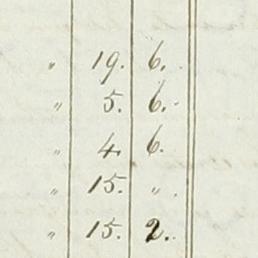 " 19. 6.
" 5. 6.
" 4. 6.
" 15. ".
" 15. 2.